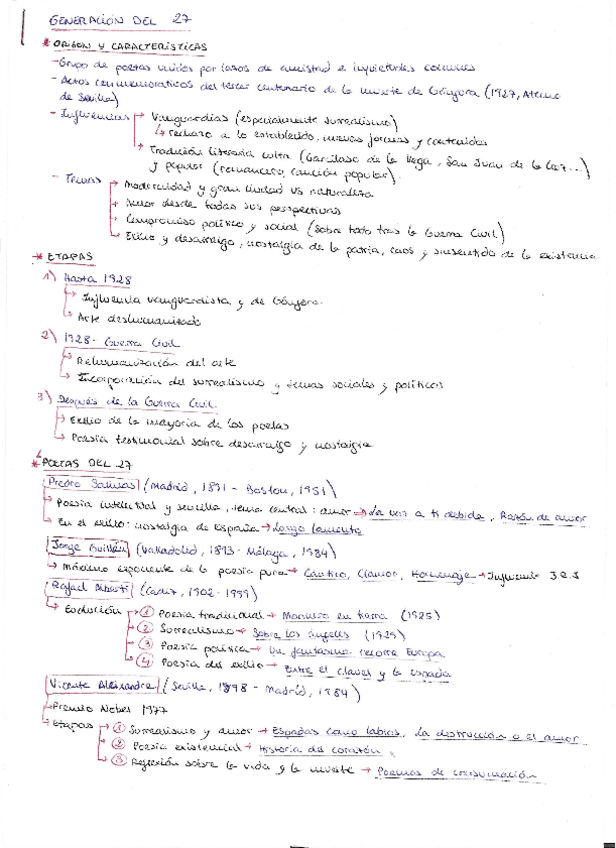 GENERACIÓN DEL 27
* ORIGEN Y CARACTERÍSTICAS
- Grupo de poetas unidos por lazos de amistad e inquietudes comunes
- Actos conmemorativos del tercer centenario de la muerte de Góngora (1927, Ateneo
de Sevilla)
- Influencias → Vanguardias (especialmente surrealismo)
↳ rechazo a lo establecido, nuevas formas y contenidos
→ Tradición literaria culta (Garcilaso de la Vega, San Juan de la Cruz...)
y popular (romancero, canción popular).
- Temas → Modernidad y gran ciudad vs naturaleza
→ Amor desde todas sus perspectivas
→ Compromiso político y social (sobre todo tras la Guerra Civil)
→ Exilio y desarraigo, nostalgia de la patria, caos y sinsentido de la existencia
* ETAPAS
1) Hasta 1928
→ Influencia vanguardista y de Góngora.
→ Arte deshumanizado
2) 1928 - Guerra Civil
→ Rehumanización del arte
→ Incorporación del surrealismo y temas sociales y políticos
3) Después de la Guerra Civil
→ Exilio de la mayoría de los poetas
→ Poesía testimonial sobre desarraigo y nostalgia
* POETAS DEL 27
Pedro Salinas (Madrid, 1891 - Boston, 1951)
→ Poesía intelectual y sencilla, tema central: amor → La voz a ti debida, Razón de amor
→ En el exilio: nostalgia de España → Largo lamento
Jorge Guillén (Valladolid, 1893 - Málaga, 1984)
→ Máximo exponente de la poesía pura → Cántico, Clamor, Homenaje → Influencia J.R.J
Rafael Alberti (Cádiz, 1902 - 1999)
→ Evolución → 1 Poesía tradicional → Marinero en tierra (1925)
→ 2 Surrealismo → Sobre los ángeles (1929)
→ 3 Poesía política → Un fantasma recorre Europa
→ 4 Poesía del exilio → Entre el clavel y la espada
Vicente Aleixandre (Sevilla, 1898 - Madrid, 1984)
→ Premio Nobel 1977
→ Etapas → 1 Surrealismo y amor → Espadas como labios, La destrucción o el amor
→ 2 Poesía existencial → Historia del corazón
→ 3 Reflexión sobre la vida y la muerte → Poemas de consumación